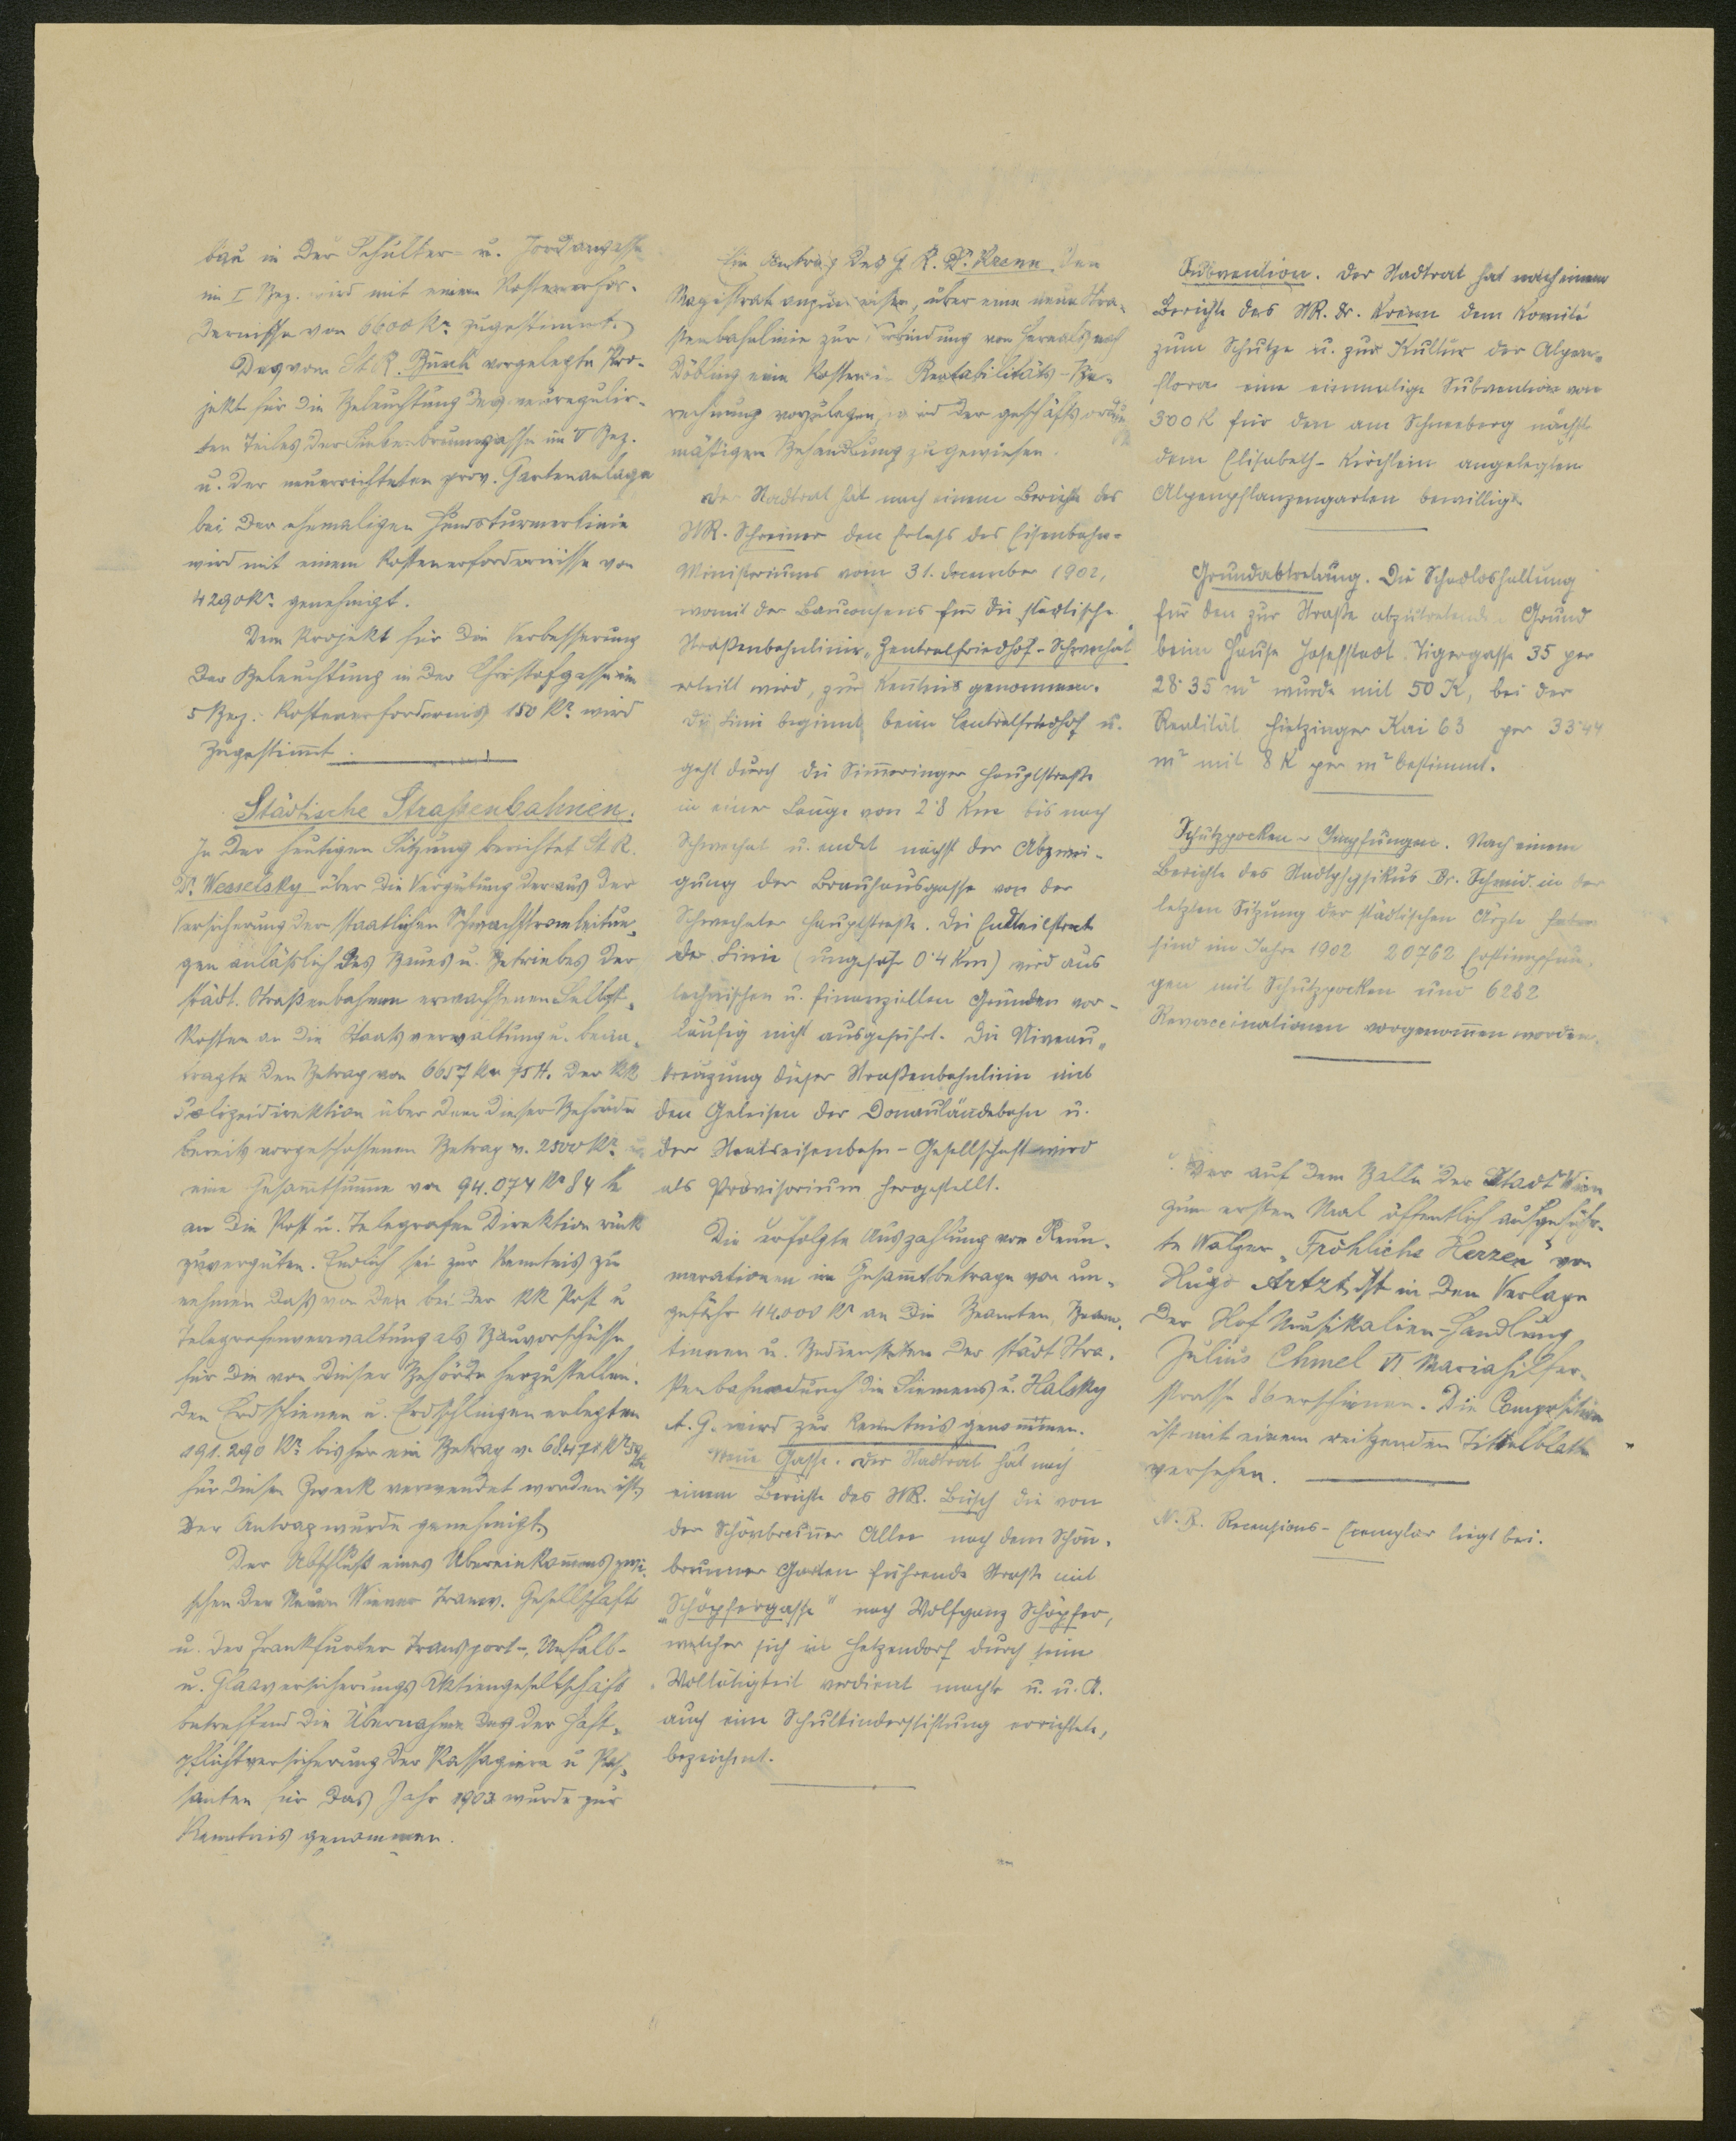 bau in der Schulter- u. Jordangasse
im I Bez. wird mit einem Kostenerfor-
dernisse von 6600 Kr. zugestimmt.
Das vom St. R. Büsch vorgelegte Pro-
jekt für die Beleuchtung des neuregulir-
ten Teiles der Siebenbrunngasse im V Bez.
u. der neuerrichteten prov. Gartenanlage
bei der ehemaligen Hundsturmerlinie
wird mit einem Kostenerfordernisse von
4290 Kr. genehmigt.
Dem Projekt für die Verbesserung
der Beleuchtung in der Christofgasse im
5 Bez. Kostenerfordernis 150 Kr. wird
zugestimmt.
Städtische Strassenbahnen.
In der heutigen Sitzung berichtet St. R.
Dr. Wesselsky über die Vergütung der aus der
Versicherung der staatlichen Schwachstromleitun-
gen anläßlich des Baues u. Betriebes der
städt. Straßenbahnen erwachsenen Selbst-
kosten an die Staatsverwaltung u. bean-
tragte den Betrag von 6657 Kr 75 H. der kk
Polizeidirektion über dem dieser Behörde
bereits vorgeschossenen Betrag v. 2500 Kr. u.
eine Gesammtsumme von 94.074 Kr 84 h
an die Post u. Telegrafen Direktion rück
zuvergüten. Endlich sei zur Kenntnis zu
nehmen daß von der bei der kk Post u
Telegrafenverwaltung als Bauvorschüsse
für die von dieser Behörde herzustellen-
den Erdschienen u. Erdschlingen erlegten
191.290 Kr. bisher ein Betrag v. 68.471 Kr
für diesen Zweck verwendet worden ist.
Der Antrag wurde genehmigt.
Der Abschluß eines Übereinkommens zwi-
schen der Neuen Wiener Tramw. Gesellschaft
u. der Frankfurter Transport-, Unfall-
u. Glasversicherungs Aktiengesellschaft
betreffend die Übernahme der Haft-
pflichtversicherung der Passagiere u Pas-
santen für das Jahr 1903 wurde zur
Kenntnis genommen.
Ein Antrag des G. R. Dr. Krenn den
Magistrat anzuweisen, über eine neue Stra-
ßenbahnlinie zur Verbindung von Hernals nach
Döbling eine Kosten- Rentabilitäts-Be-
rechnung vorzulegen, wird der geschäftsordnungs
mäßigen Behandlung zugewiesen.
Der Stadtrat hat nach einem Berichte des
StR. Schreiner den Erlaß des Eisenbahn-
Ministeriums vom 31. December 1902,
womit der Bauconsens für die städtische
Straßenbahnlinie „Zentralfriedhof-Schwechat"
erteilt wird, zur Kentnis genommen.
Die Linie beginnt beim Centralfriedhof u.
geht durch die Simmeringer Hauptstraße
in einer Länge von 2·8 Km bis nach
Schwechat u. endet nächst der Abzwei-
gung der Brauhausgasse von der
Schwechater Hauptstraße. Die Endteilstrecke
der Linie (ungefähr 0·4 Km) wird aus
technischen u. finanziellen Gründen vor-
läufig nicht ausgeführt. Die Niveau-
kreuzung dieser Straßenbahnlinie mit
den Geleisen der Donauländebahn u.
der Staatseisenbahn-Gesellschaft wird
als Provisorium hergestellt.
Die erfolgte Auszahlung von Remu-
nerationen im Gesammtbetrage von un-
gefähr 44.000 Kr an die Beamten, Beam-
tinnen u. Bediensteten der städt Stra-
ßenbahnen durch die Siemens u. Halsky
A. G. wird zur Kenntnis genommen.
Neue Gasse. Der Stadtrat hat nach
einem Berichte des StR. Büsch die von
der Schönbrunner Allee nach dem Schön-
brunner Garten führende Straße mit
„Schöpfergasse" nach Wolfganz Schöpfer,
welcher sich in Hetzendorf durch seine
Woltätigkeit verdient machte u. u. A.
auch eine Schulkinderstiftung errichtete,
bezeichnet.
Subvention. Der Stadtrat hat nach einem
Berichte des StR. Dr. Krenn dem Komité
zum Schutze u. zur Kultur der Alpen-
flora eine einmalige Subvention von
300 K für den am Schneeberg nächst
dem Elisabeth-Kirchlein angelegten
Alpenpflanzengarten bewilligt.
Grundabtretung. Die Schadloshaltung
für den zur Straße abzutretenden Grund
beim Hause Josefstadt Tigergasse 35 per
28·35 m² wurde mit 50 K, bei der
Realität Hietzinger Kai 63 per 33·44
m² mit 8 K per m² bestimmt.
Schutzpocken-Impfungen. Nach einem
Berichte des Stadtphysikus Dr. Schmid in der
letzten Sitzung der städtischen Ärzte
sind im Jahre 1902 20762 Erstimpfun-
gen mit Schutzpocken und 6282
Revaccinationen vorgenommen worden.
Der auf dem Balle der Stadt Wien
zum ersten Mal öffentlich aufgeführ-
te Walzer „Fröhliche Herzen" von
Hugo Artzt ist in dem Verlage
der Hof Musikalien-Handlung
Julius Chmel VI Mariahilfer-
strasse 86 erschienen. Die Composition
ist mit einem reitzenden Tittelblatte
versehen.
N. B. Recensions-Exemplar liegt bei.